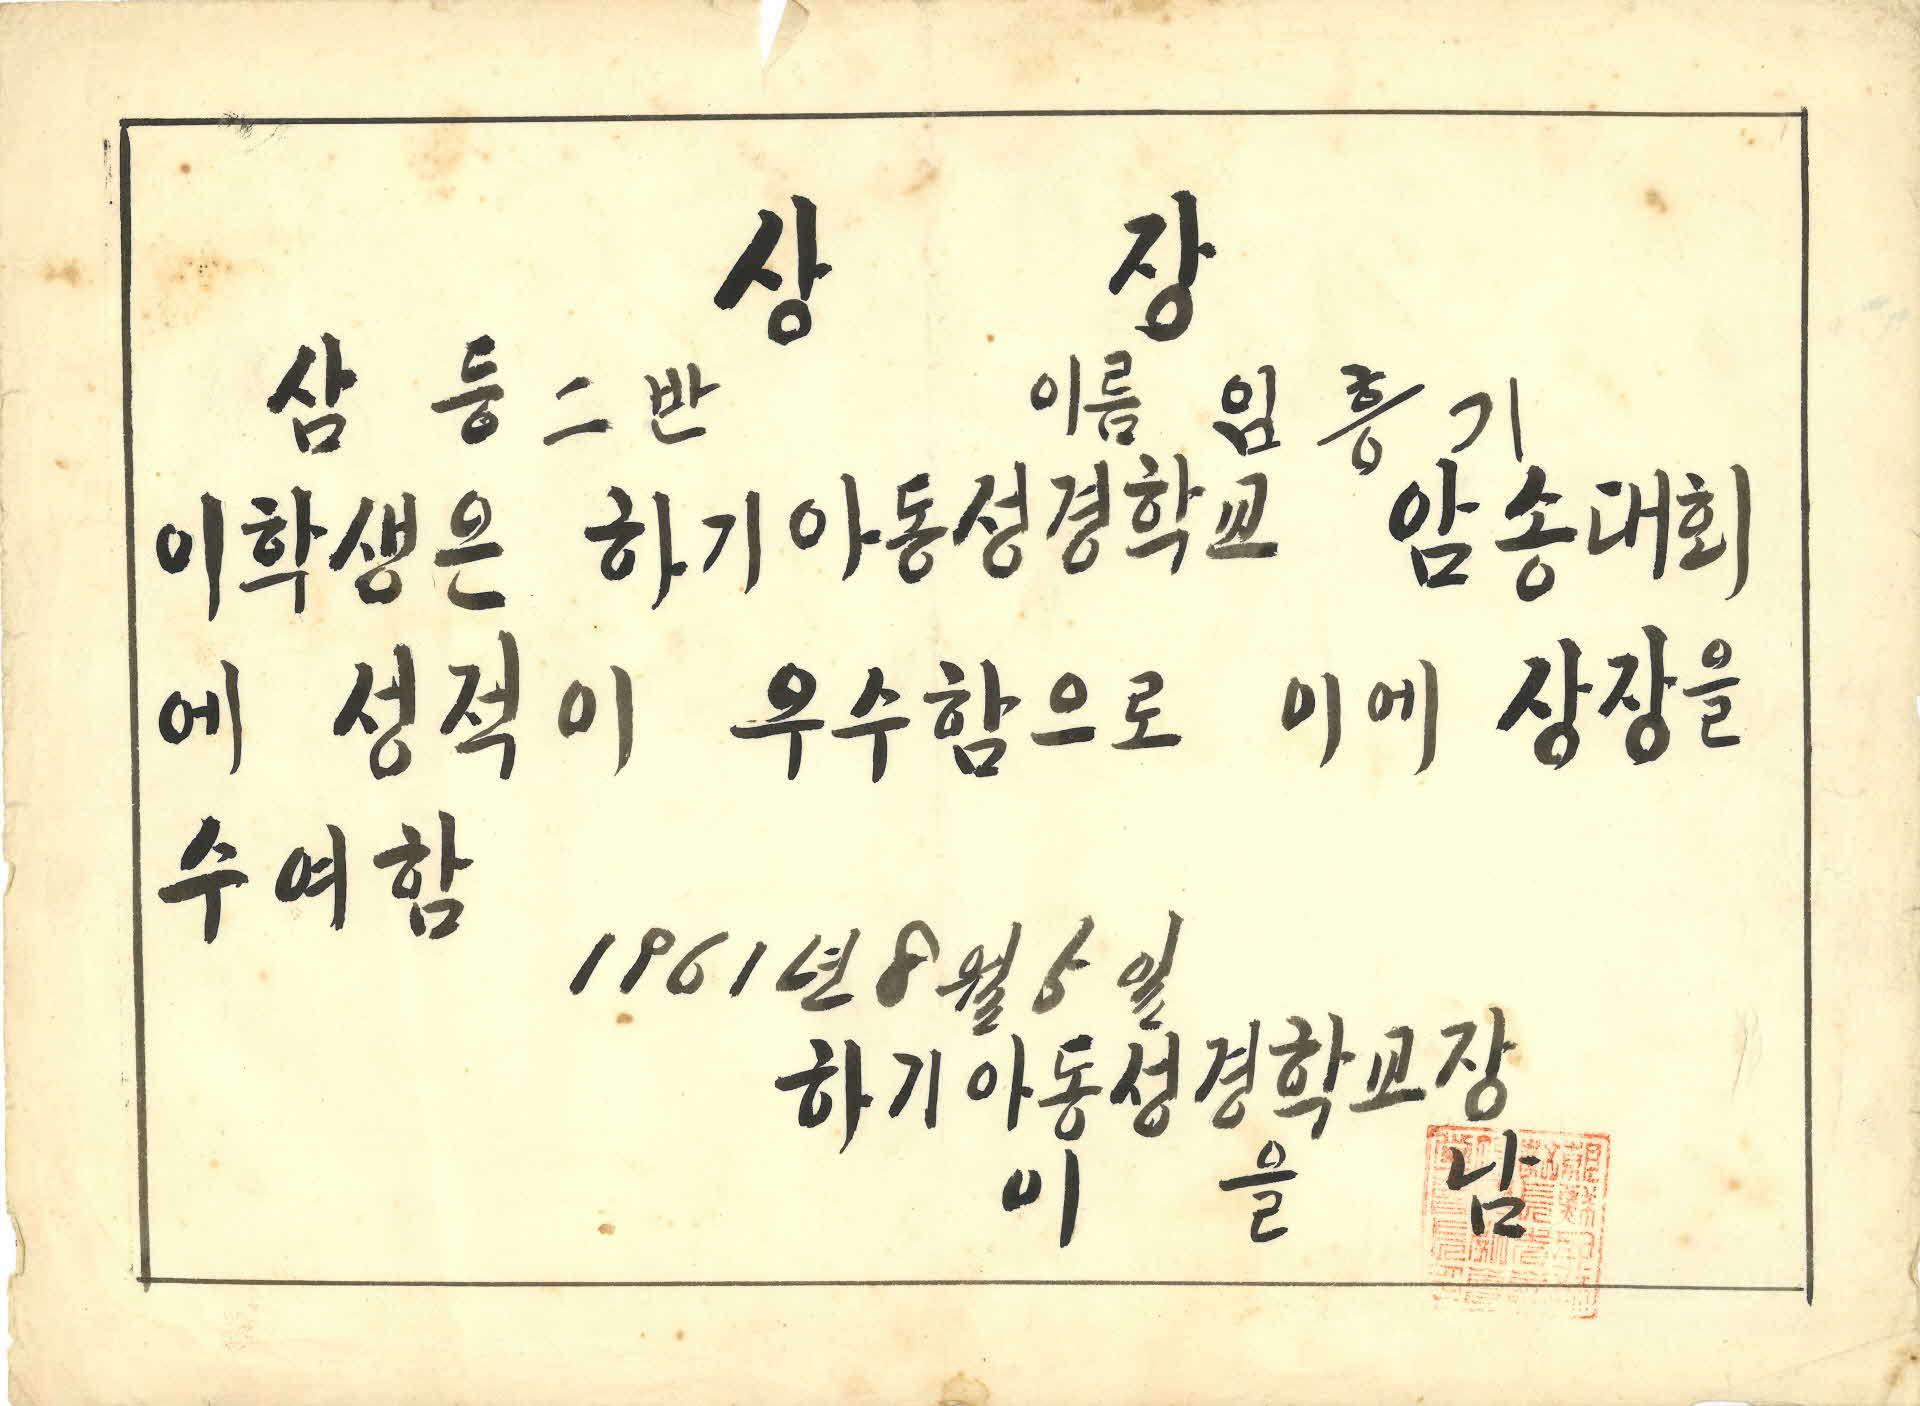 상 장
삼 등 二 반 이름 임 흥 기
이학생은 하기아동성경학교 암송대회
에 성적이 우수함으로 이에 상장을
수여함
1961년 8월 5일
하기아동성경학교장
이 을 남